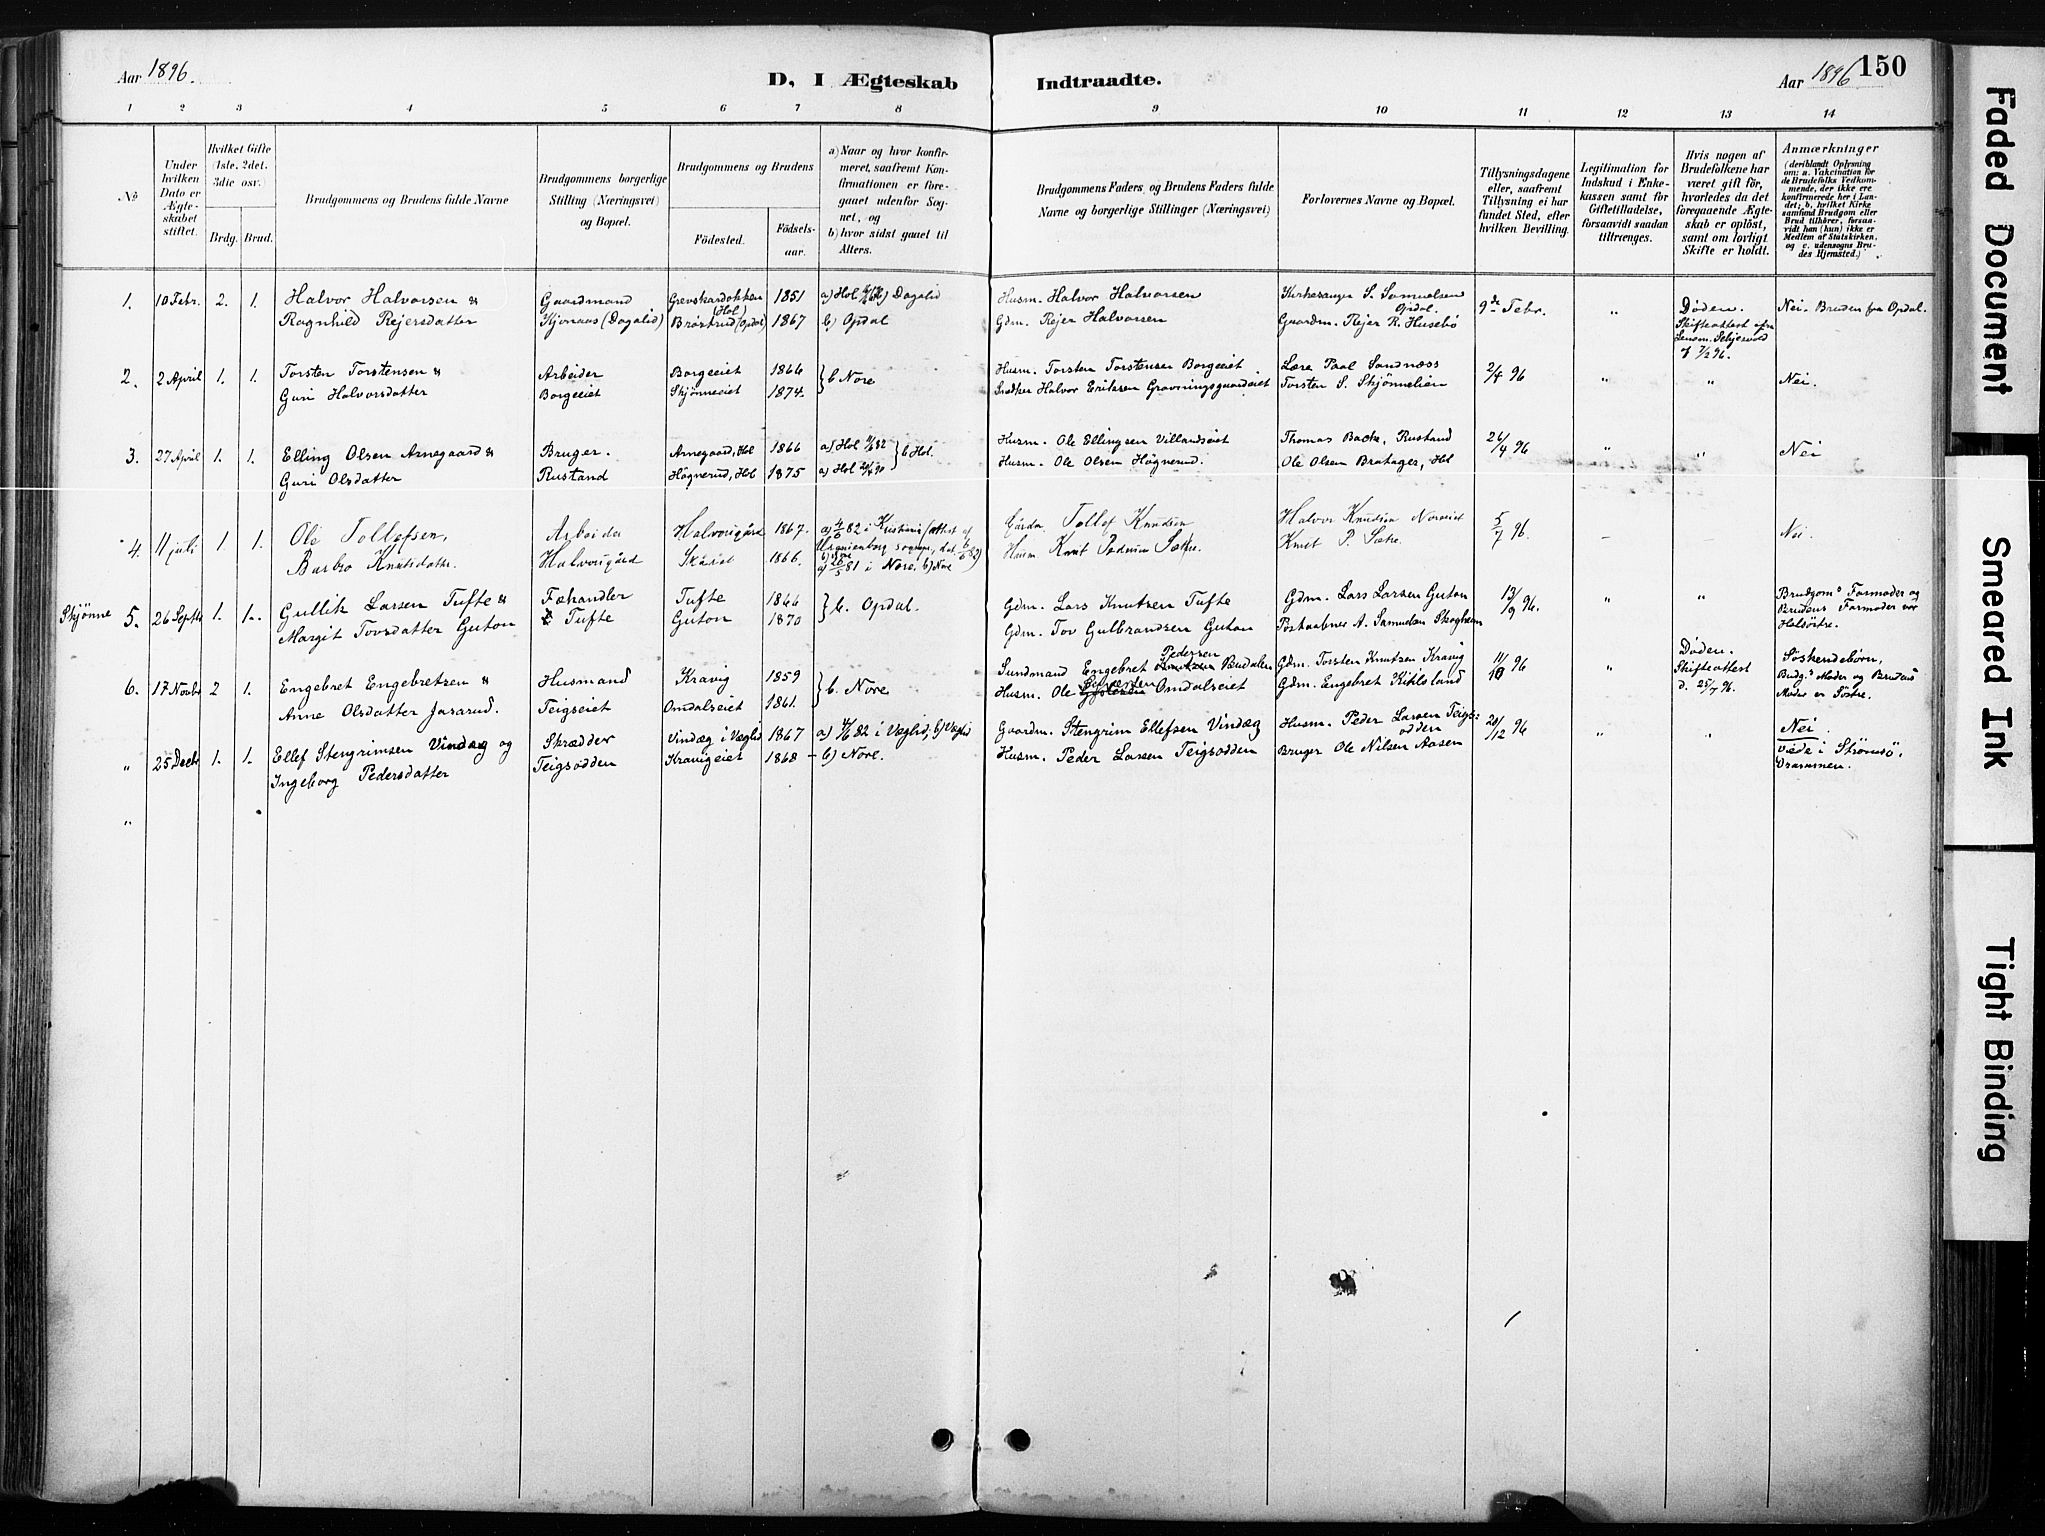 Aar 1896.
D, I Ægteskab Indtraadte.
Aar 1896 150
1 2 3 4 5 6 7 8 9 10 11 12 13 14
No
Under hvilken Dato er Ægteskabet stiftet.
Hvilket Gifte (1ste, 2det, 3die osv.)
Brdg. Brud.
Brudgommens og Brudens fulde Navne
Brudgommens borgerlige Stilling (Næringsvei) og Bopæl.
Brudgommens og Brudens
Fødested.
Fødselsaar.
a) Naar og hvor konfirmeret, saafremt Konfirmationen er foregaaet udenfor Sognet, og
b) hvor sidst gaaet til Alters.
Brudgommens Faders og Brudens Faders fulde Navne og borgerlige Stillinger (Næringsvei)
Forlovernes Navne og Bopæl.
Tillysningsdagene eller, saafremt Tillysning ei har fundet Sted, efter hvilken Bevilling.
Legitimation for Indskud i Enkekassen samt for Giftetilladelse, forsaavidt saadan tiltrænges.
Hvis nogen af Brudefolkene har været gift før, hvorledes da det foregaaende Ægteskab er opløst, samt om lovligt Skifte er holdt.
Anmærkninger
(deriblandt Oplysning om: a. Vakcination for de Brudefolks Vedkommende, der ikke ere konfirmerede her i Landet; b. hvilket Kirkesamfund Brudgom eller Brud tilhører, forsaavidt han (hun) ikke er Medlem af Statskirken, og c. udensogns Brudes Hjemsted.)
1. 10 Febr. 2. 1. Halvor Halvorsen & Gaardmand Grevskardokken (Hol) 1851 a) Hol b) Dagalid Husm. Halvor Halvorsen Kirkesanger S. Samuelsen Opdal. 9de Febr. " Døden. Nei. Bruden fra Opdal.
Ragnhild Rejersdatter Kjønaas (Dagalid) Brøstrud (Opdal) 1867 b) Opdal Gdm. Rejer Halvorsen Gaardm. Rejer R. Husebø Skifteattest
7/2 96.
2. 2 April 1. 1. Torsten Torstensen & Arbeider Borgeeiet 1866 } b Nore Husm. Torsten Torstensen Borgeeiet Lære Paal Sandnæss 2/4 96 " " Nei.
Guri Halvorsdatter Borgeeiet Skjønneeiet 1874. Halvor Eriksen Gravningsgaardeiet Torsten S. Skjønnelien
3. 27 April 1. 1. Elling Olsen Arnegaard & Bruger. Arnegaard, Hol 1866 a) Hol } b Hol. Husm. Ole Ellingsen Villandseiet Thomas Backe, Rustand 26/4 96 " " Nei
Guri Olsdatter Rustand Høgnerud, Hol 1875 a) Hol Husm. Ole Olsen Høgnerud. Ole Olsen Bratager, Hol
4. 11 juli 1. 1. Ole Tollefsen, Arbeider Halvorsgård 1867. a) 4/6 82 i Kristiania (attest af Gårdm. Tollef Knudsen Halvor Knudsen Noreeiet 5/7 96. - - Nei.
Barbro Knutsdatter. Halvorsgård 1866. Uranienborg sogn b) Nore a) 26/5 81 i Nore. b) Nore Husm. Knut Pedersen Sætre. Knut P. Sætre.
Skjønne 5. 26 Septb 1. 1. Gullik Larsen Tufte & Fæhandler Tufte 1866 } b. Opdal. Gdm. Lars Knutsen Tufte Gdm. Lars Larsen Guton 13/9 96. " " Brudgoms Farmoder og
Margit Tovsdatter Guton Tufte Guton 1870 Gdm. Tov Gulbrandsen Guton Postaabner A. Samuelsen Skogheim Brudens Farmoder var Halsøstre.
6. 17 Novbr 2 1. Engebret Engebretsen & Husmand Kravig 1859 } b. Nore Sundmand Engebret Pedersen Budalen Gdm. Torsten Knutsen Kravig 11/10 96 " Døden. Søskendebørn,
Anne Olsdatter Jararud. Teigseiet Omdalseiet 1861. Husm. Ole Omdalseiet Gdm. Engebret Kittilsland Skifteattest d. 25/7 96. Budg.s Moder og Brudens Moder er Søstre.
" 25 Decbr 1. 1. Ellef Stengrimsen Vindæg og Skrædder Vindæg i Væglid 1867 a) 4/6 82 i Væglid, b) Væglid Gaardm. Stengrim Ellefsen Vindæg Husm. Peder Larsen Teigsodden 20/12 96 " " Nei
Ingeborg Pedersdatter Teigsodden Kravigeiet 1868 - b) Nore. Husm. Peder Larsen Teigsodden Bruger Ole Nilsen Aasen viede i Strømsø, Drammen.
"
Faded Document
Smeared Ink
Tight Binding